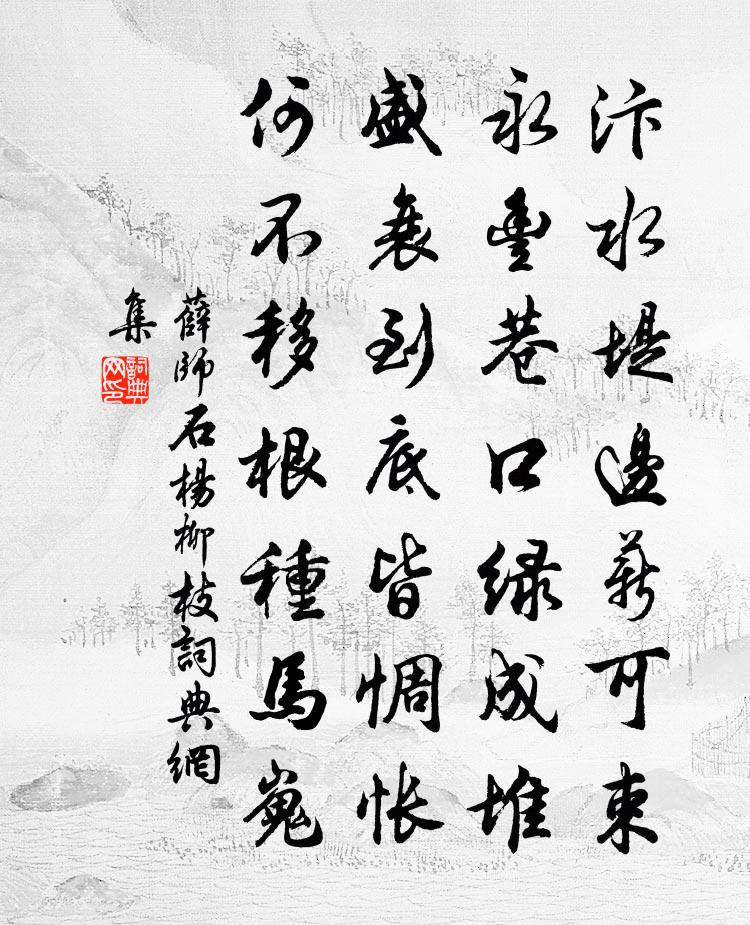 汴水堤邊薪可束
永豐巷口緑成堆
盛衰到底皆惆悵
何不移根種馬嵬
薛師石楊柳枝詞典網
集
詞典網印